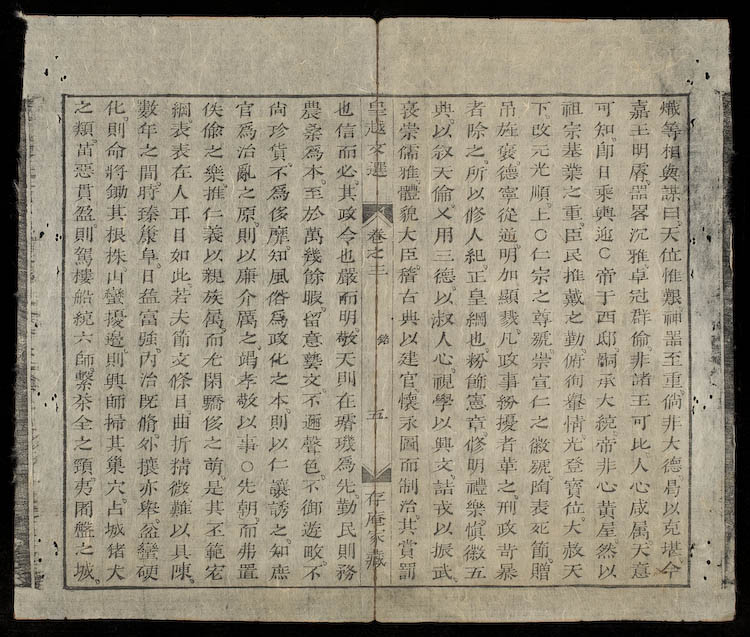 熾等相與謀曰。天位惟艱。神器至重。倘非大德。曷以克堪。今
嘉王明睿。器畧沉雅。卓冠群倫。非諸王可比。人心咸属。天意
可知。即日乘輿迎○帝于西邸。嗣承大統。帝非心黃屋。然以
祖宗基業之重。臣民推戴之勤。俯徇轝情。光登寶位。大赦天
下。改元光順。上○仁宗之尊號。崇宣仁之徽號。陶表死節。贈
吊旌褒。德寧從道。明加顯戮。凡政事紛擾者革之。刑政苛暴
者除之。所以修人紀。正皇綱也。粉餙憲章。修明禮樂。慎徽五
典。以敘天倫。乂用三德。以淑人心。視學以興文。詰戎以振武。
褒崇儒雅。體貌大臣。稽古典以建官。懷永圖而制治。其賞罰
皇越文選 卷之三 銘 五 存庵家藏
也信而必。其政令也嚴而明。敬天則在璿璣為先。勤民則務
農桑為本。至於萬幾餘暇。留意藝文。不邇聲色。不御遊畋。不
尚珍貨。不為侈靡。知風俗為政化之本。則以仁讓誘之。知庶
官為治亂之原。則以廉介厲之。竭孝敬以事○先朝。而弗置
佚愉之樂。推仁義以親族属。而尤閑驕侈之萌。是其丕範宏
綱。表表在人耳目如此。若夫節文條目。曲折精微。難以具陳。
數年之間。將臻巢阜。日益富強。內治既脩。外攘亦舉。盆蠻硬
化。則命將鋤其根株。山蠻擾邊。則興師掃其巢穴。占城猪犬
之類。苗惡貫盈。則駕樓船。統六師。繫茶全之頸。夷闍盤之城。